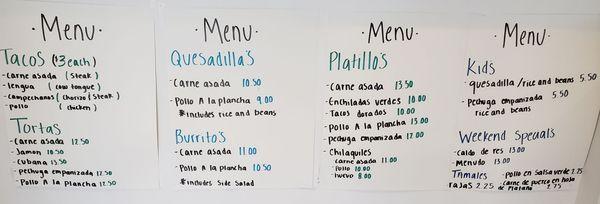 ·Menu·
Tacos ($3 each)
-Carne asada (steak)
-lengua (cow tongue)
-campechanos (chorizo/steak)
-Pollo (chicken)
Tortas
-Carne asada 12.50
-Jamon 10.50
-Cubana 13.50
-pechuga empanizada 12.50
-Pollo A la plancha 12.50
·Menu·
Quesadilla's
-Carne asada 10.50
-Pollo A la plancha 9.00
*includes rice and beans
Burrito's
-Carne asada 11.00
-Pollo A la plancha 10.50
*includes side Salad
·Menu·
Platillo's
-Carne asada 13.50
-Enchiladas verdes 10.00
-Tacos dorados 10.00
-Pollo A la plancha 13.00
-pechuga empanizada 12.00
-Chilaquiles
-Carne asada 11.00
-Pollo 10.00
-huevo 8.00
·Menu·
Kids
-quesadilla/rice and beans 5.50
-Pechuga empanizada 5.50
rice and beans
Weekend Specials
-Caldo de res 13.00
-Menudo 13.00
Tamales -Pollo en salsa verde 2.75
-rajas 2.25 -Carne de puerco en hoja
de platano 2.75